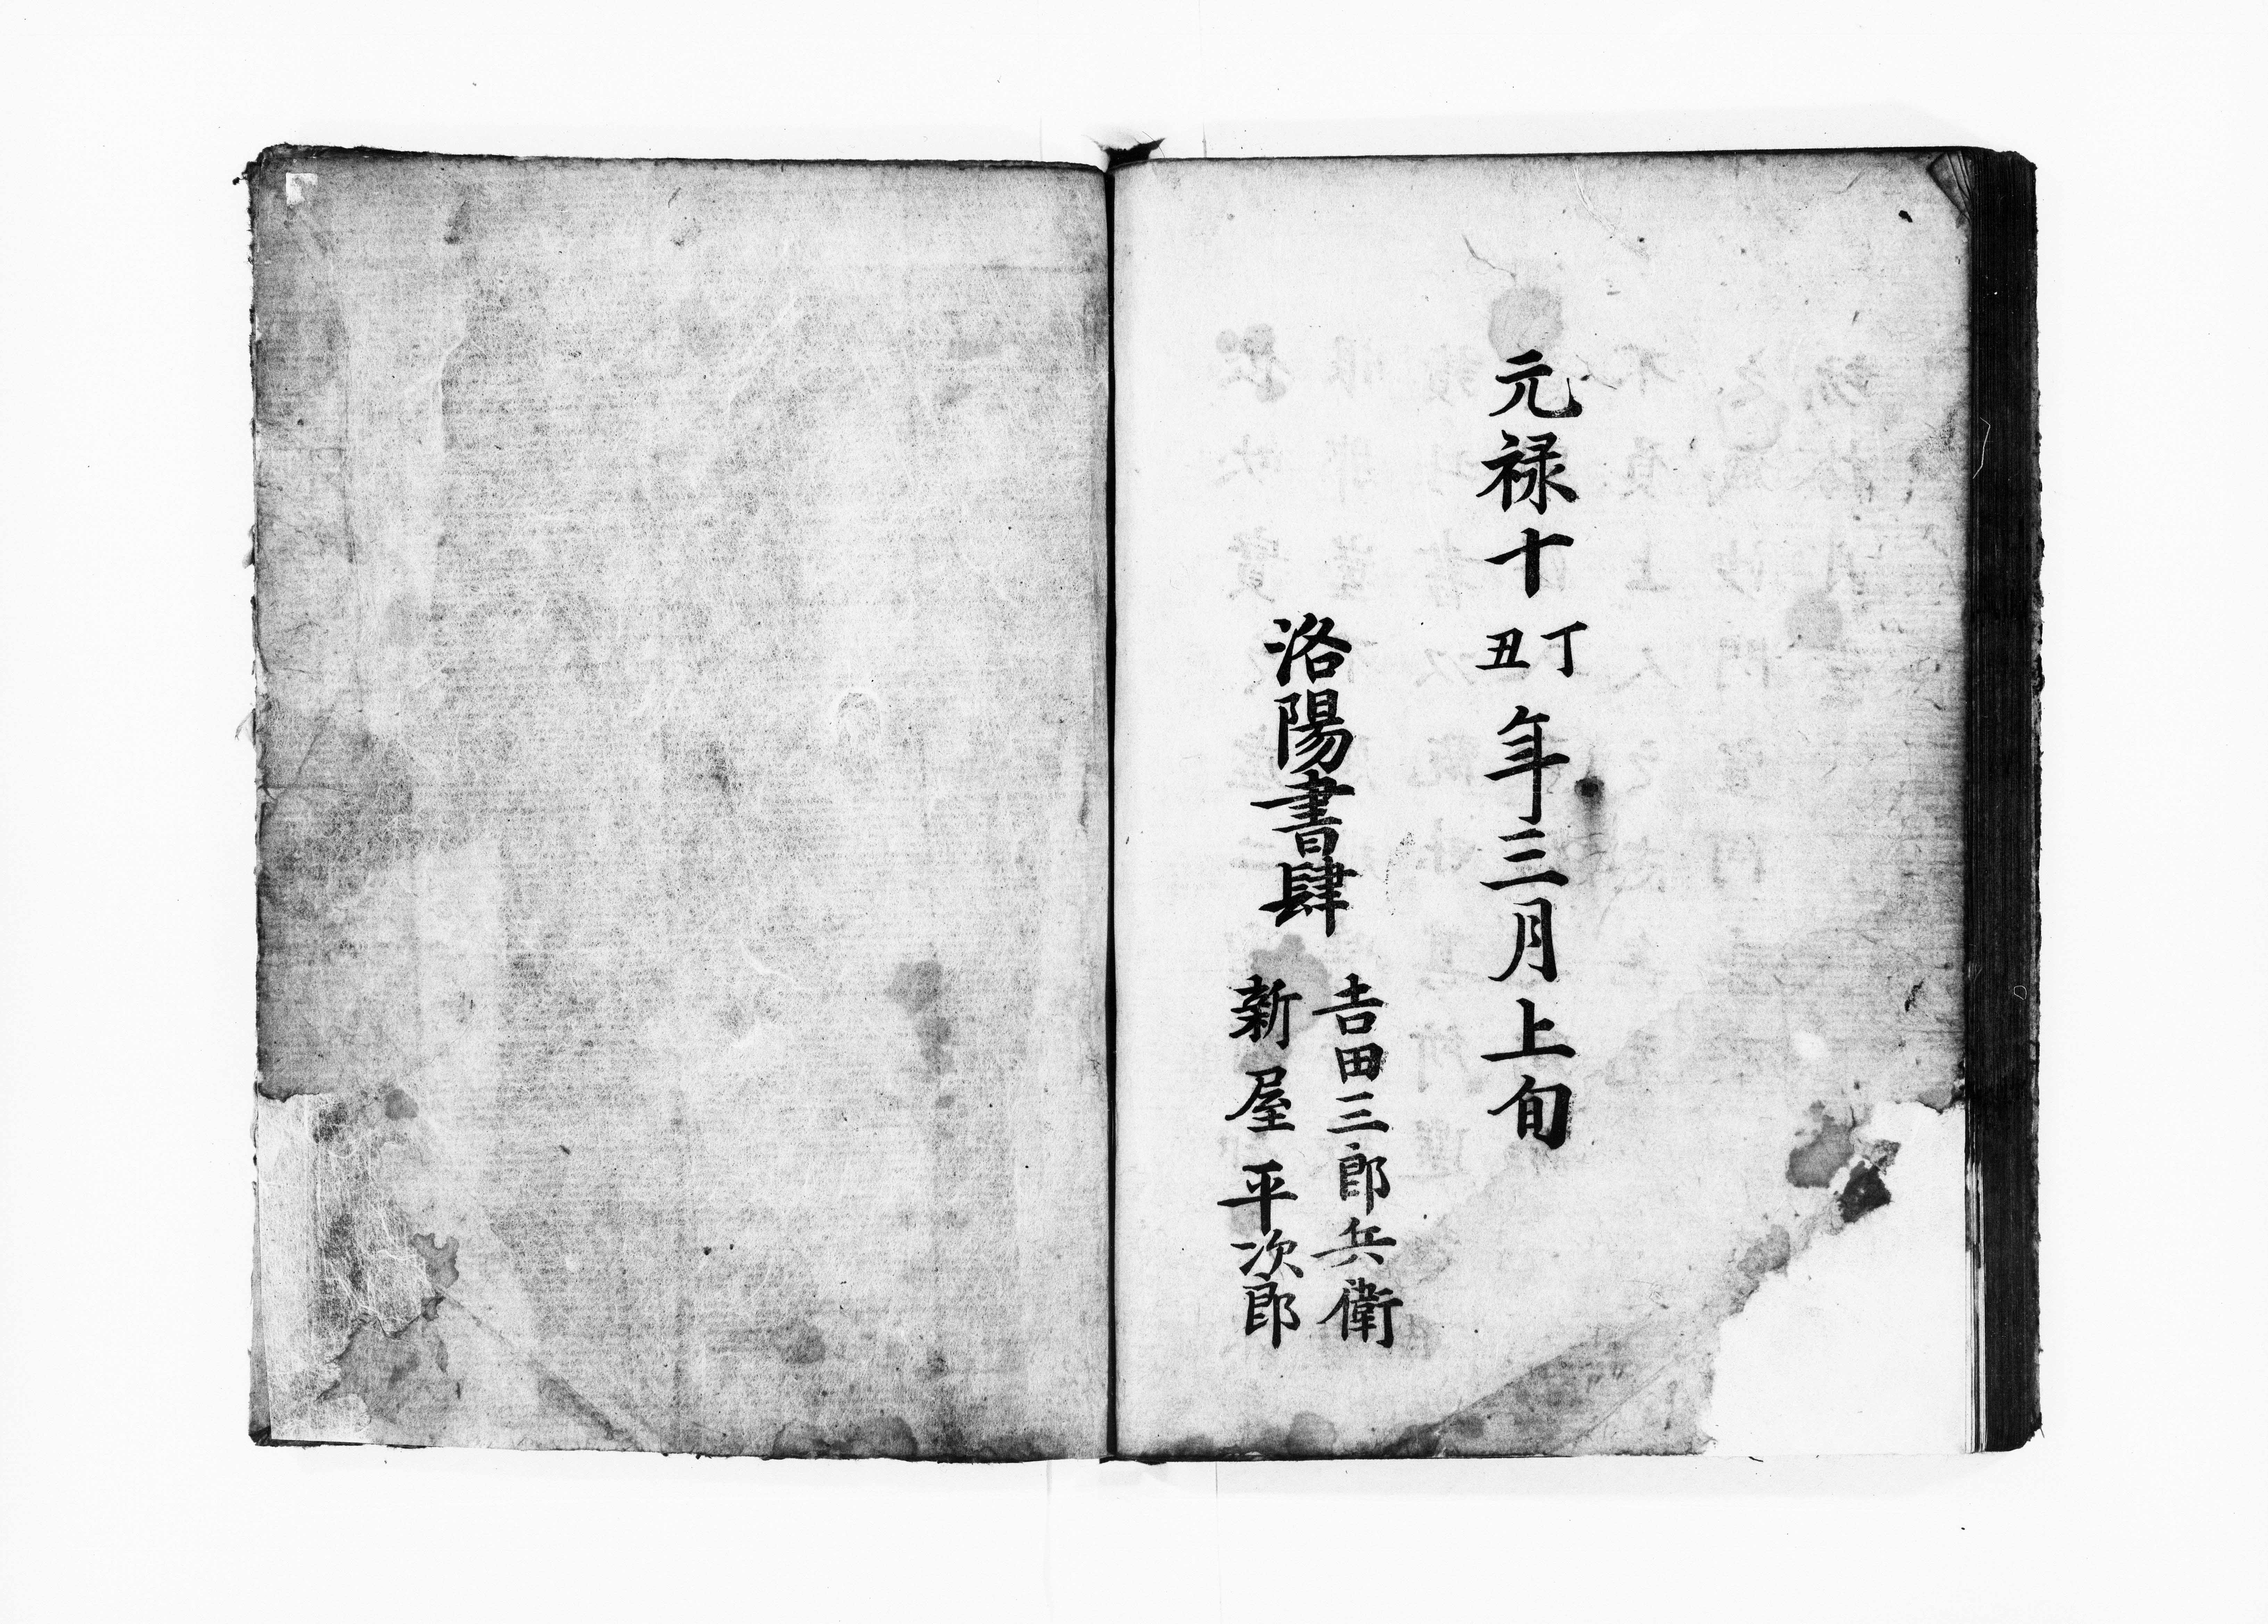 元禄十丁丑年三月上旬
洛陽書肆
吉田三郎兵衛
新屋平次郎